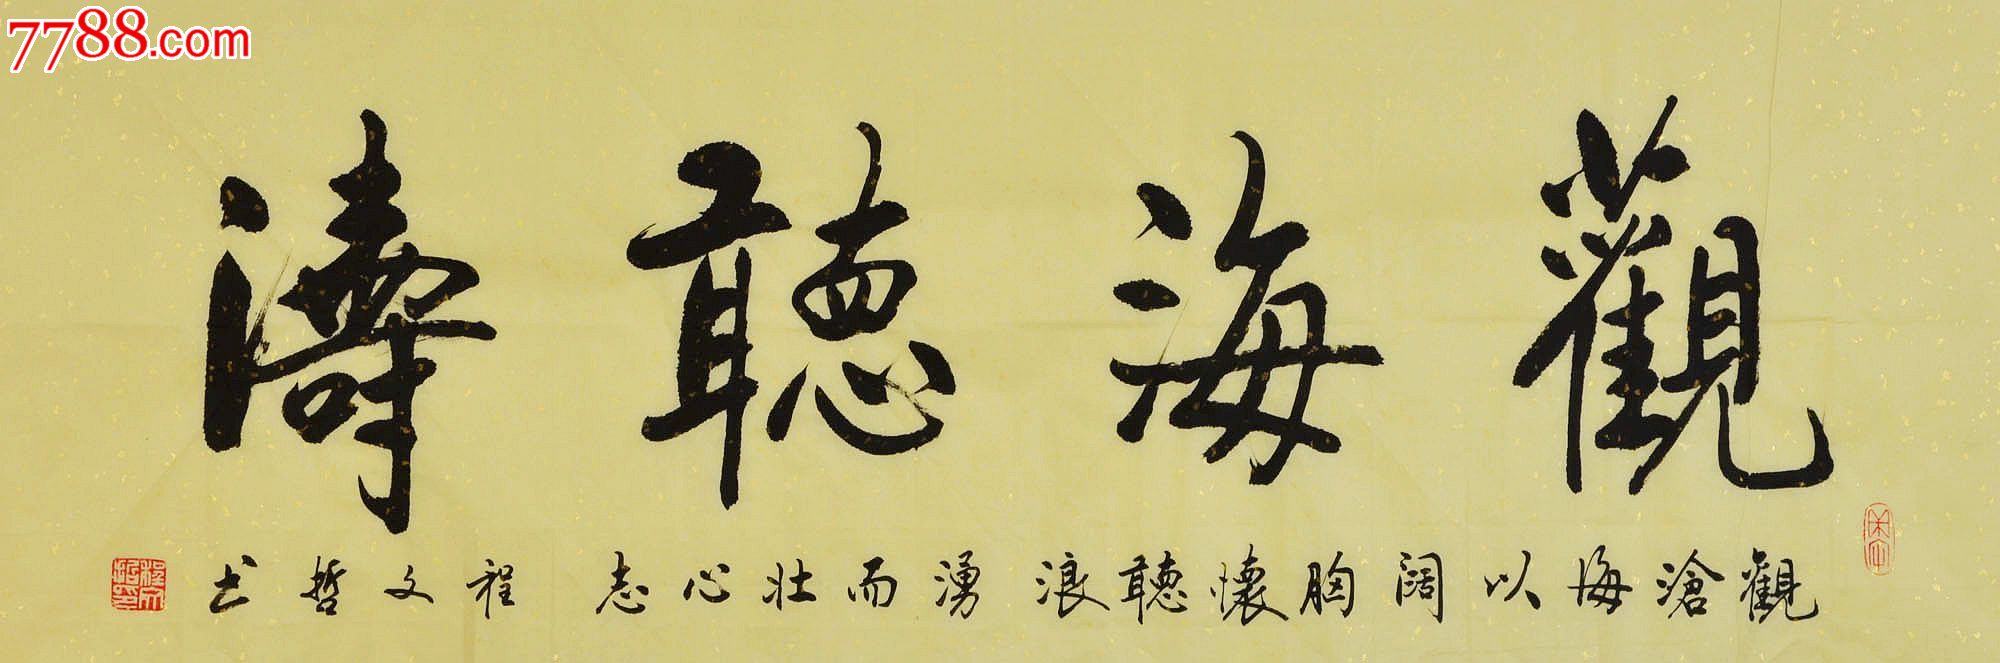 7788.com
觀海聽濤
觀滄海以闊胸懷聽浪湧而壯心志 程文哲书
程文哲印